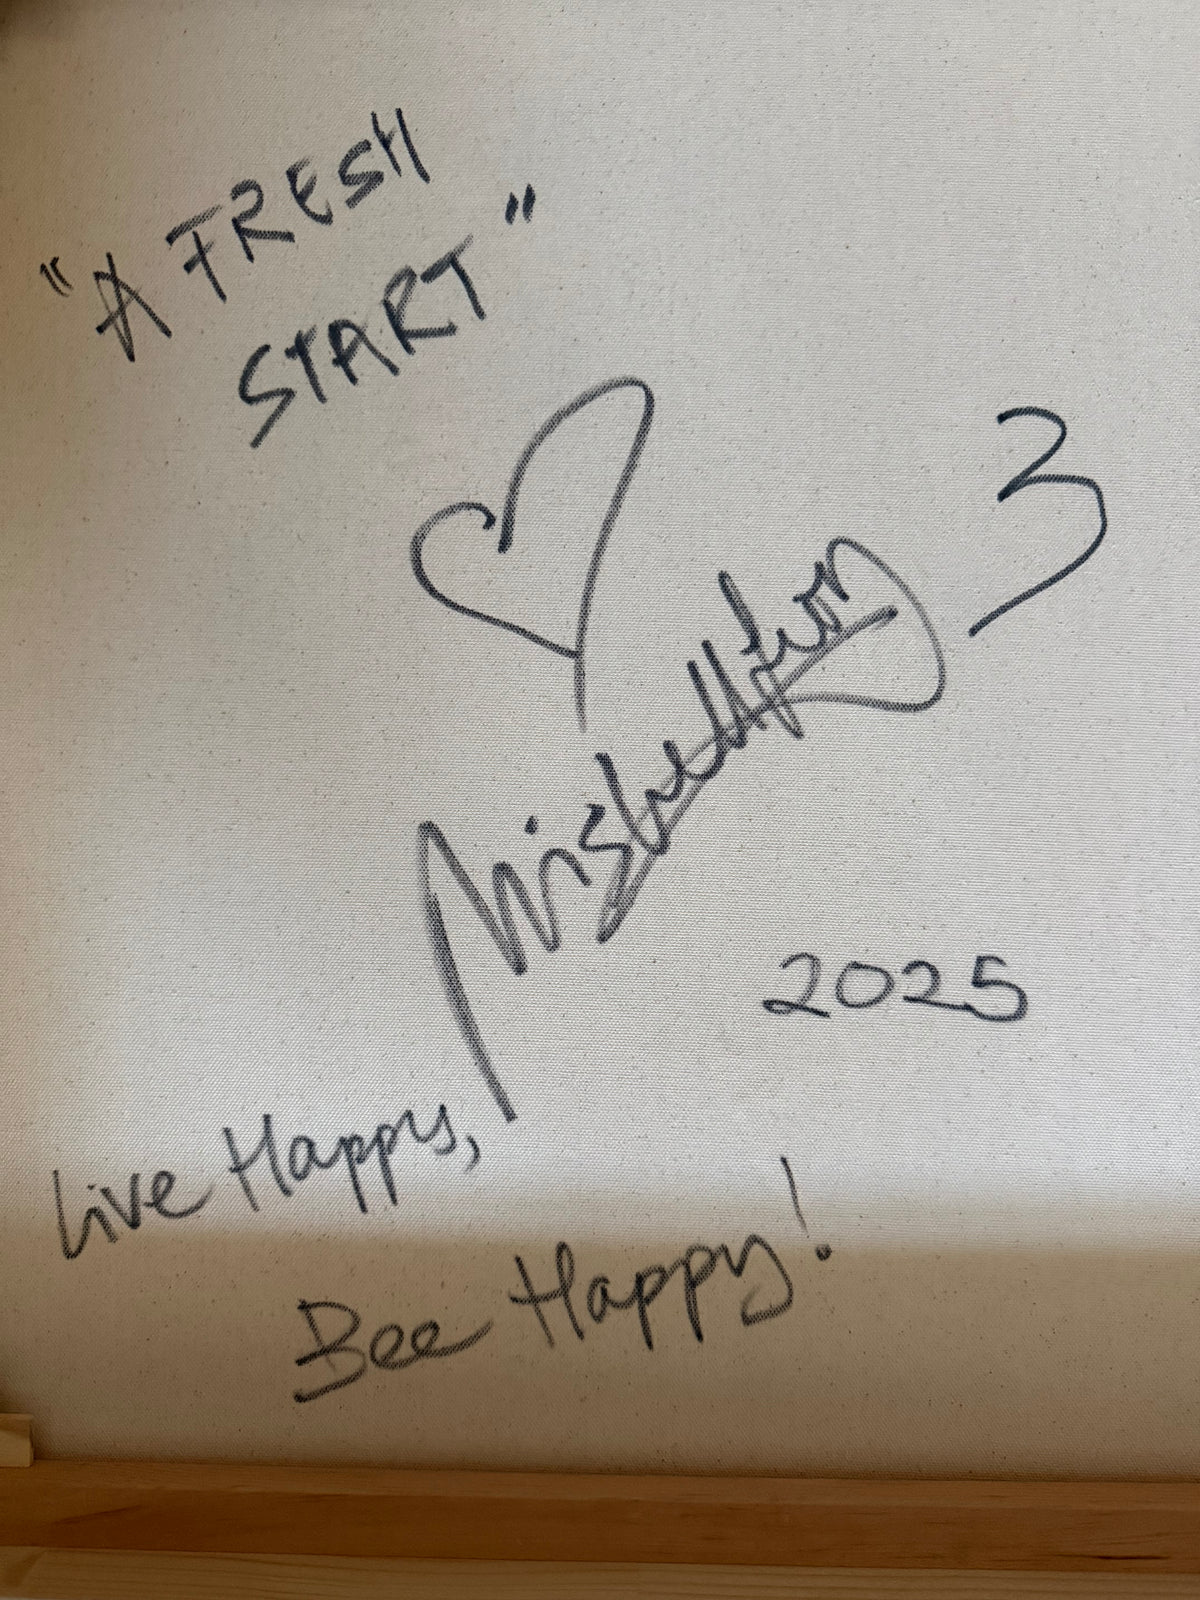 "A FRESH
START"
3
2025
Live Happy,
Bee Happy!